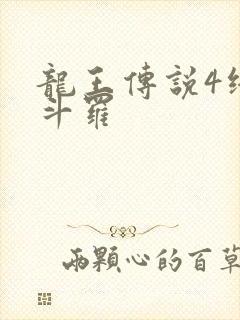 龍王傳說4
斗羅
兩顆心的百草